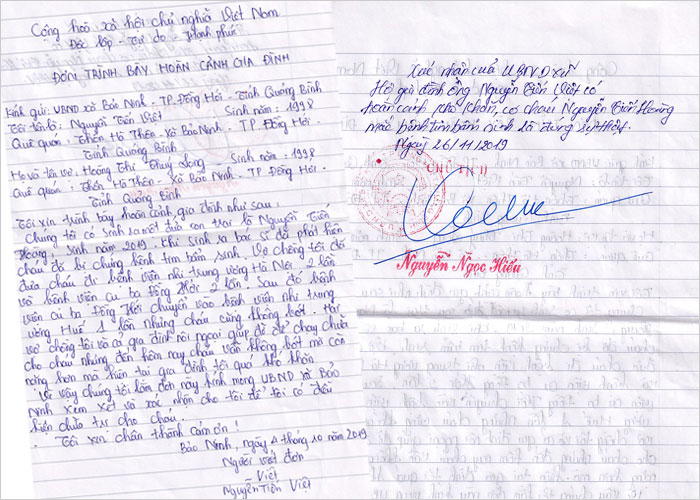 Cộng hoà xã hội chủ nghĩa Việt Nam
Độc lập - Tự do - Hạnh phúc
ĐƠN TRÌNH BÀY HOÀN CẢNH GIA ĐÌNH
Kính gửi: UBND xã Bảo Ninh - TP Đồng Hới - Tỉnh Quảng Bình
Tôi tên là: Nguyễn Tiến Việt Sinh năm: 1998
Quê quán: Thôn Hà Thôn - Xã Bảo Ninh - TP Đồng Hới -
Tỉnh Quảng Bình
Họ và tên vợ: Hoàng Thị Thuỳ Dung - Sinh năm: 1998
Quê quán: Thôn Hà Thôn - Xã Bảo Ninh - TP Đồng Hới -
Tỉnh Quảng Bình
Tôi xin trình bày hoàn cảnh gia đình như sau:
Chúng tôi có sinh ra một đứa con trai là Nguyễn Tiến
Hoàng, sinh năm 2019. Khi sinh ra bác sĩ đã phát hiện
cháu đã bị chứng bệnh tim bẩm sinh. Vợ chồng tôi đã
đưa cháu đi bệnh viện nhi trung ương Hà Nội 2 lần
và bệnh viện cu ba Đồng Hới 2 lần. Sau đó bệnh
viện cu ba Đồng Hới chuyển vào bệnh viện nhi trung
ương Huế 1 lần nhưng cháu cũng không bớt. Hai
vợ chồng tôi và cả gia đình nội ngoại giúp đỡ để chạy chữa
cho cháu nhưng đến hôm nay cháu vẫn không bớt mà còn
nặng hơn mà hiện tại gia đình tôi quá khó khăn
Vì vậy chúng tôi làm đơn này kính mong UBND xã Bảo
Ninh xem xét và xác nhận cho tôi để tôi có điều
kiện chữa trị cho cháu.
Tôi xin chân thành cảm ơn!
Bảo Ninh, ngày 4 tháng 10 năm 2019
Người viết đơn
Việt
Nguyễn Tiến Việt
Xác nhận của UBND xã
Hộ gia đình ông Nguyễn Tiến Việt có
hoàn cảnh khó khăn, có cháu Nguyễn Tiến Hoàng
mắc bệnh tim bẩm sinh là đúng sự thật.
Ngày 26/11/2019
CHỦ TỊCH
Nguyễn Ngọc Hiếu